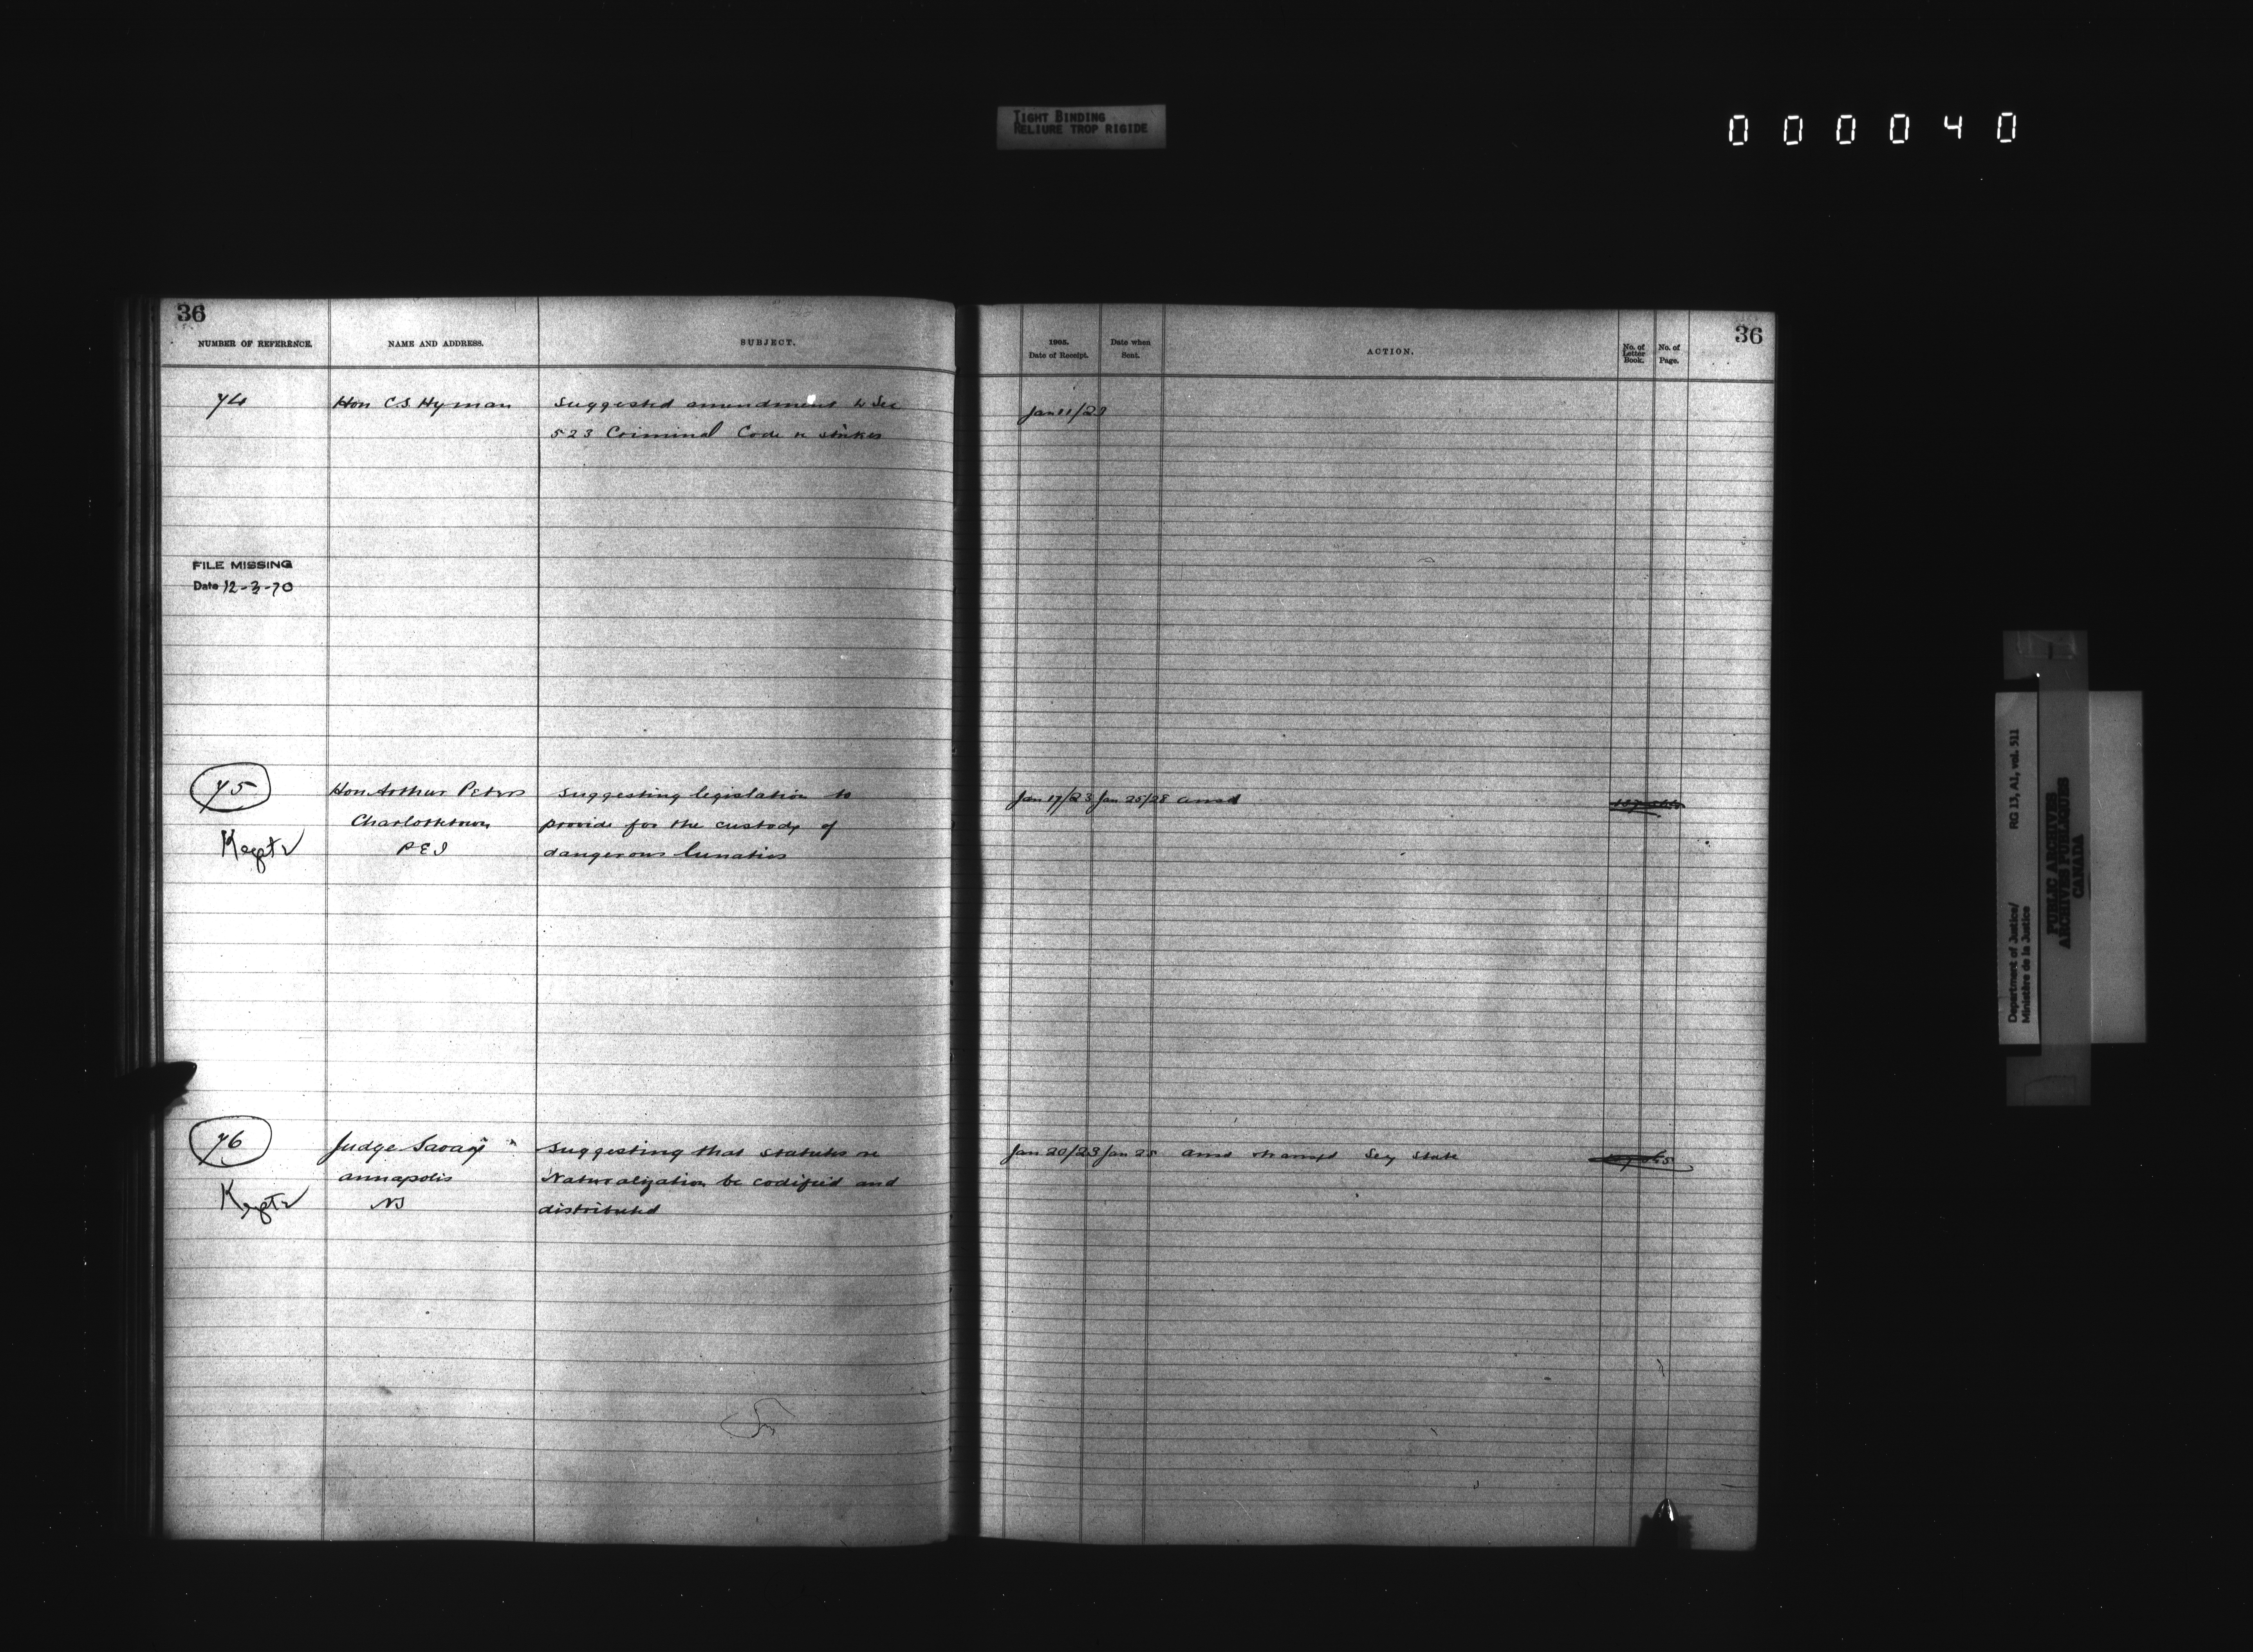 TIGHT BINDING
RELIURE TROP RIGIDE
000040
36
NUMBER OF REFERENCE. NAME AND ADDRESS. SUBJECT.
1905. Date of Receipt. Date when Sent. ACTION. No. of Letter Book. No. of Page.
36
74 Hon C.S. Hyman Suggested amendment to Sec Jan 11/23
523 Criminal Code re strikes
FILE MISSING
Date 12-3-70
75 Hon Arthur Peters Suggesting legislation to Jan 17/23 Jan 25/28 ansd
Charlottetown provide for the custody of
PEI dangerous lunatics
76 Judge Savary Suggesting that statutes re Jan 20/23 Jan 25 ansd Secy State
Annapolis Naturalization be codified and
NS distributed
Department of Justice/ RG 13, A1, vol. 511
Ministère de la Justice
PUBLIC ARCHIVES
ARCHIVES PUBLIQUES
CANADA